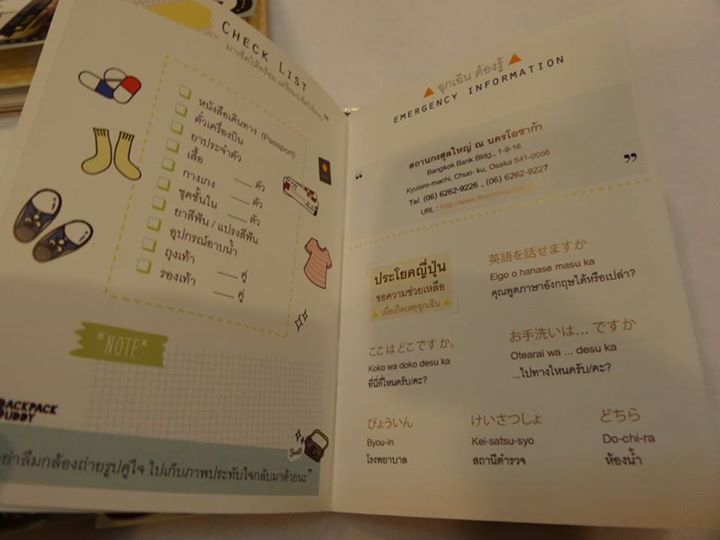 CHECK LIST
หนังสือเดินทาง (Passport)
ตั๋วเครื่องบิน
ยาประจำตัว
เสื้อ ____ ตัว
กางเกง ____ ตัว
ชุดชั้นใน ____ ตัว
ยาสีฟัน / แปรงสีฟัน
อุปกรณ์อาบน้ำ
ถุงเท้า ____ คู่
รองเท้า ____ คู่
*NOTE*
BACKPACK
BUDDY
อย่าลืมกล้องถ่ายรูปคู่ใจ ไปเก็บภาพประทับใจกลับมาด้วยนะ"
ฉุกเฉิน ต้องรู้
EMERGENCY INFORMATION
“
สถานกงสุลใหญ่ ณ นครโอซาก้า
Bangkok Bank Bldg., 1-9-16
Kyutaro-machi, Chuo- ku, Osaka 541-0056
Tel. (06) 6262-9226 , (06) 6262-9227
URL :
”
ประโยคญี่ปุ่น
ขอความช่วยเหลือ
เมื่อเกิดเหตุฉุกเฉิน
英語を話せますか
Eigo o hanase masu ka
คุณพูดภาษาอังกฤษได้หรือเปล่า?
ここはどこですか。
Koko wa doko desu ka
ที่นี่ที่ไหนครับ/คะ?
お手洗いは... ですか
Otearai wa ... desu ka
...ไปทางไหนครับ/คะ?
びょういん
Byou-in
โรงพยาบาล
けいさつしょ
Kei-satsu-syo
สถานีตำรวจ
どちら
Do-chi-ra
ห้องน้ำ